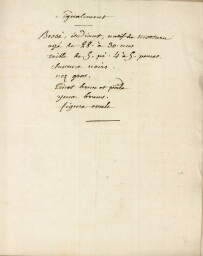 Signalement
Bossé, Indiant, natif de
agé de 28 à 30 ans
taille de 5. pi. 4 à 5. pouces.
cheveux noirs.
nez gros.
teint brun et pâle
yeux bruns.
figure ovale